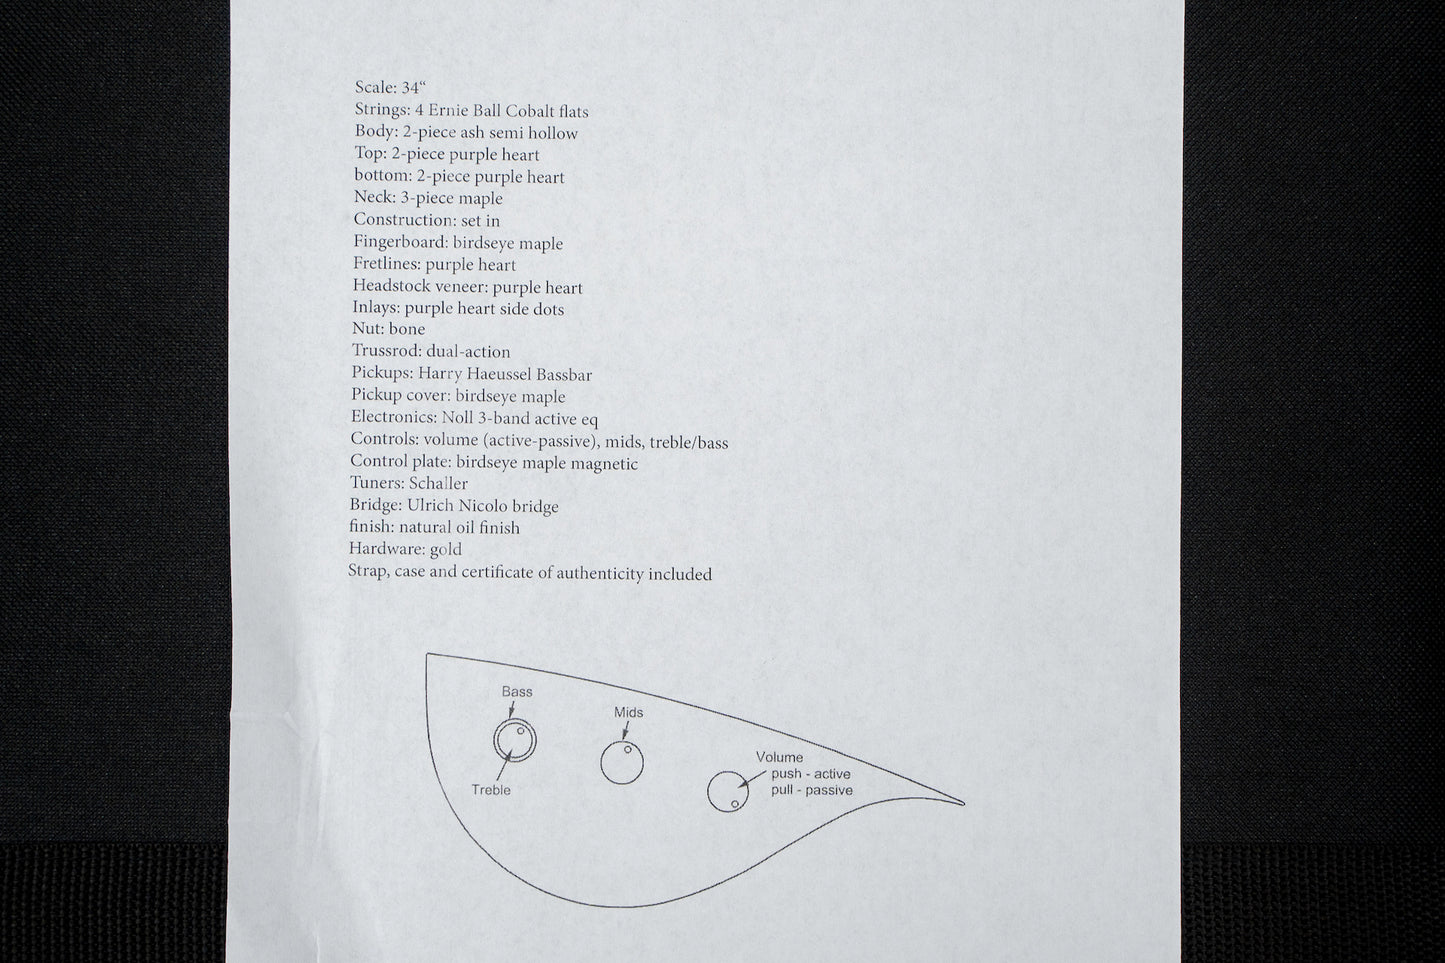 Scale: 34“
Strings: 4 Ernie Ball Cobalt flats
Body: 2-piece ash semi hollow
Top: 2-piece purple heart
bottom: 2-piece purple heart
Neck: 3-piece maple
Construction: set in
Fingerboard: birdseye maple
Fretlines: purple heart
Headstock veneer: purple heart
Inlays: purple heart side dots
Nut: bone
Trussrod: dual-action
Pickups: Harry Haeussel Bassbar
Pickup cover: birdseye maple
Electronics: Noll 3-band active eq
Controls: volume (active-passive), mids, treble/bass
Control plate: birdseye maple magnetic
Tuners: Schaller
Bridge: Ulrich Nicolo bridge
finish: natural oil finish
Hardware: gold
Strap, case and certificate of authenticity included
Bass
Mids
Volume
push - active
pull - passive
Treble